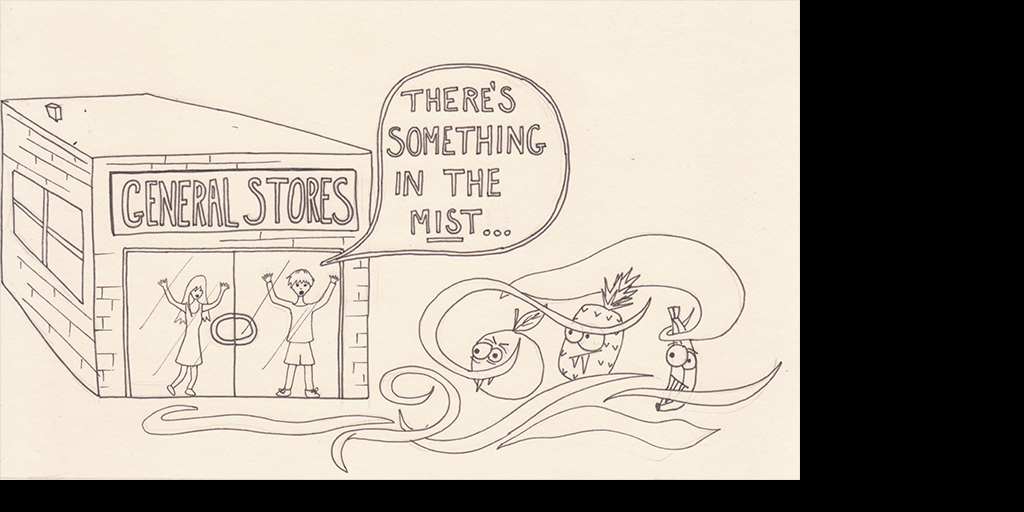 GENERAL STORES
THERE'S
SOMETHING
IN THE
MIST...